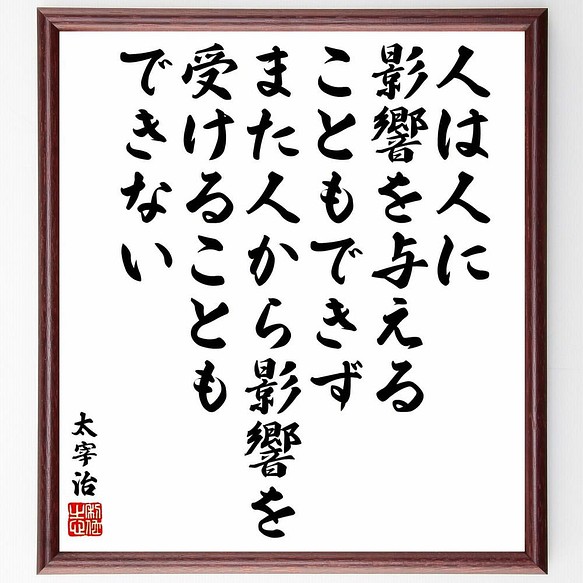 人は人に
影響を与える
こともできず
また人から影響を
受けることも
できない
太宰治